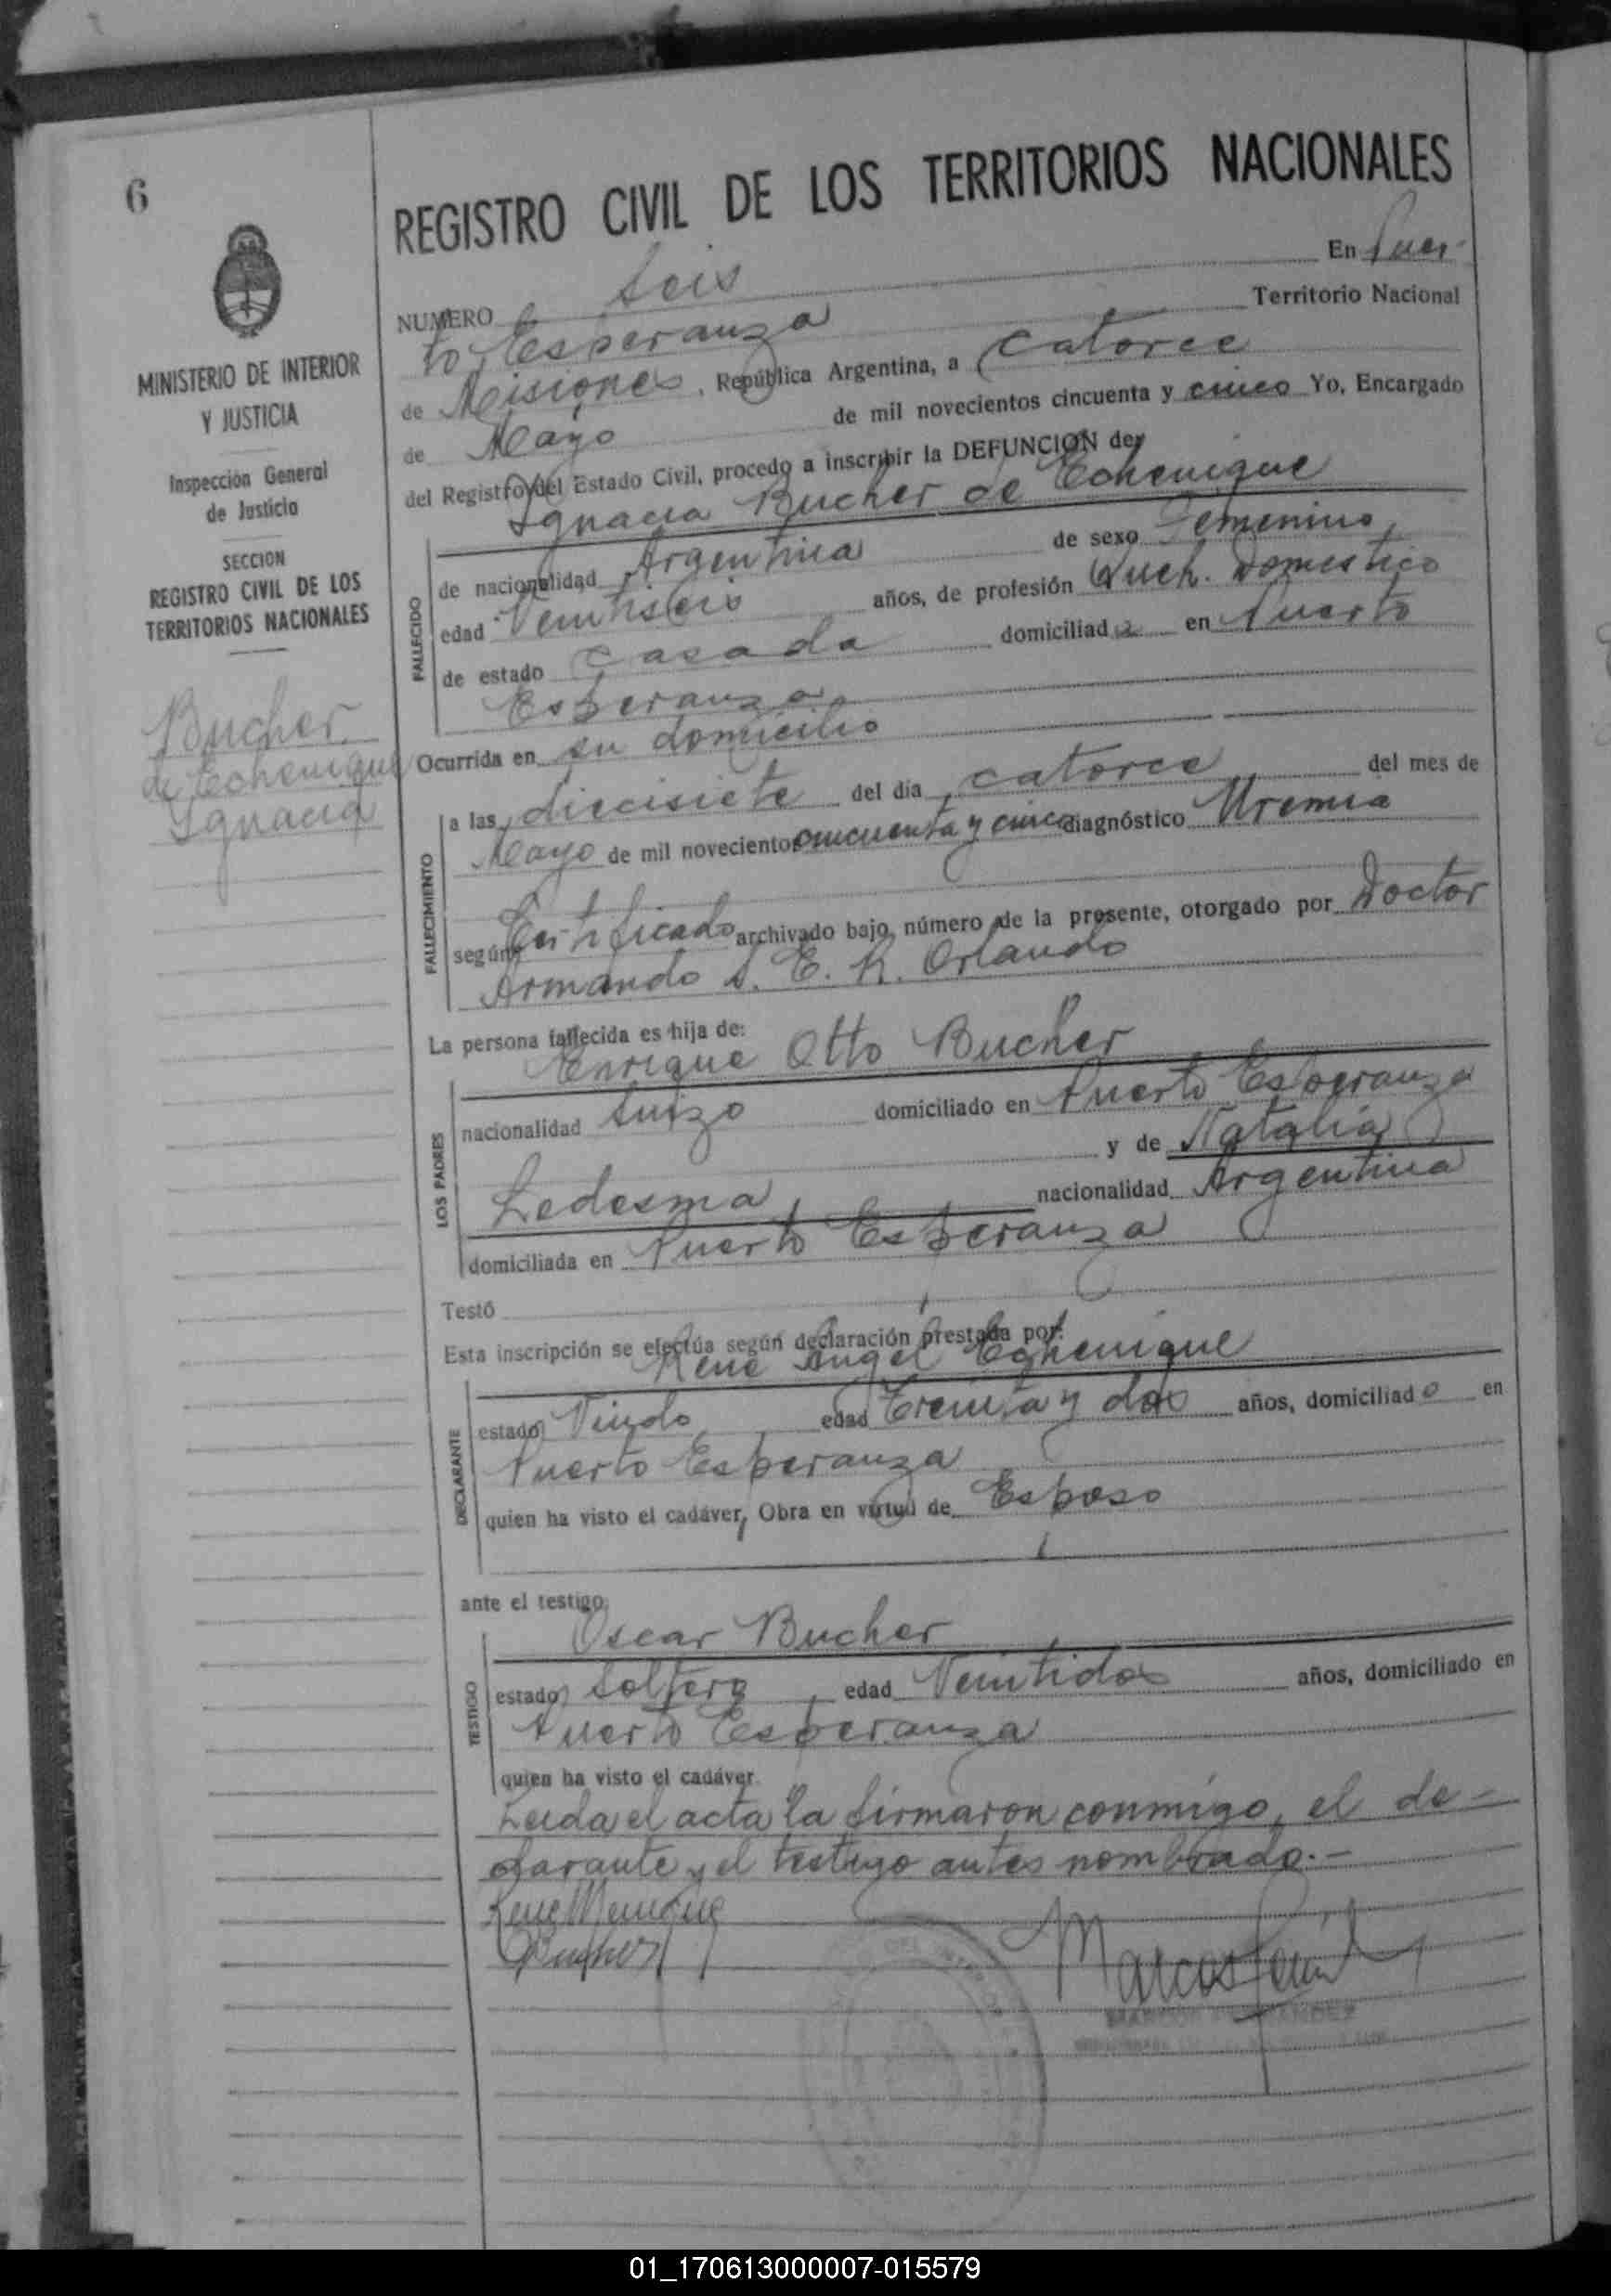 6
REGISTRO CIVIL DE LOS TERRITORIOS NACIONALES
MINISTERIO DE INTERIOR
Y JUSTICIA
Inspección General
de Justicia
SECCION
REGISTRO CIVIL DE LOS
TERRITORIOS NACIONALES
Bucher
de Echenique
Ignacia
NUMERO Seis En Puer-
to Esperanza Territorio Nacional
de Misiones, República Argentina, a Catorce
de Mayo de mil novecientos cincuenta y cinco Yo, Encargado
del Registro del Estado Civil, procedo a inscribir la DEFUNCION de:
Ignacia Bucher de Echenique
FALLECIDO
de nacionalidad Argentina de sexo Femenino,
edad Veintiseis años, de profesión Queh. Domestico
de estado casada domiciliada en Puerto
Esperanza
Ocurrida en su domicilio
FALLECIMIENTO
a las diecisiete del día catorce del mes de
Mayo de mil novecientos cincuenta y cinco diagnóstico Uremia
según Certificado archivado bajo número de la presente, otorgado por Doctor
Armando A. E. R. Orlando
La persona fallecida es hija de:
Enrique Otto Bucher
LOS PADRES
nacionalidad Suizo domiciliado en Puerto Esperanza
y de Natalia
Ledesma, nacionalidad Argentina
domiciliada en Puerto Esperanza
Testó
Esta inscripción se efectúa según declaración prestada por:
Rene Angel Echenique
DECLARANTE
estado Viudo, edad Treinta y dos años, domiciliado en
Puerto Esperanza
quien ha visto el cadáver, Obra en virtud de Esposo
ante el testigo:
Oscar Bucher
TESTIGO
estado Soltero, edad Veintidos años, domiciliado en
Puerto Esperanza
quien ha visto el cadáver.
Leida el acta la firmaron conmigo, el de-
clarante y el testigo antes nombrado.-
Bucher
Marcos
01_170613000007-015579